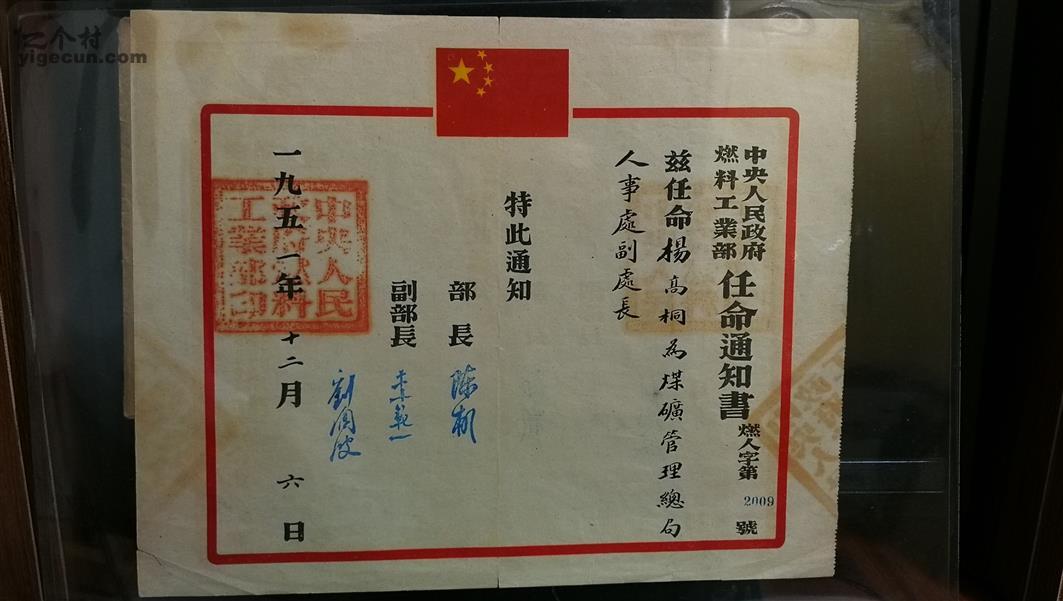 中央人民政府
燃料工業部
任命通知書
燃人字第2009號
兹任命楊高桐為煤礦管理總局
人事處副處長
特此通知
部長 陳郁
副部長 李範一
劉瀾波
一九五一年十二月六日
中央人民
政府燃料
工業部印
亿个村
yigecun.com